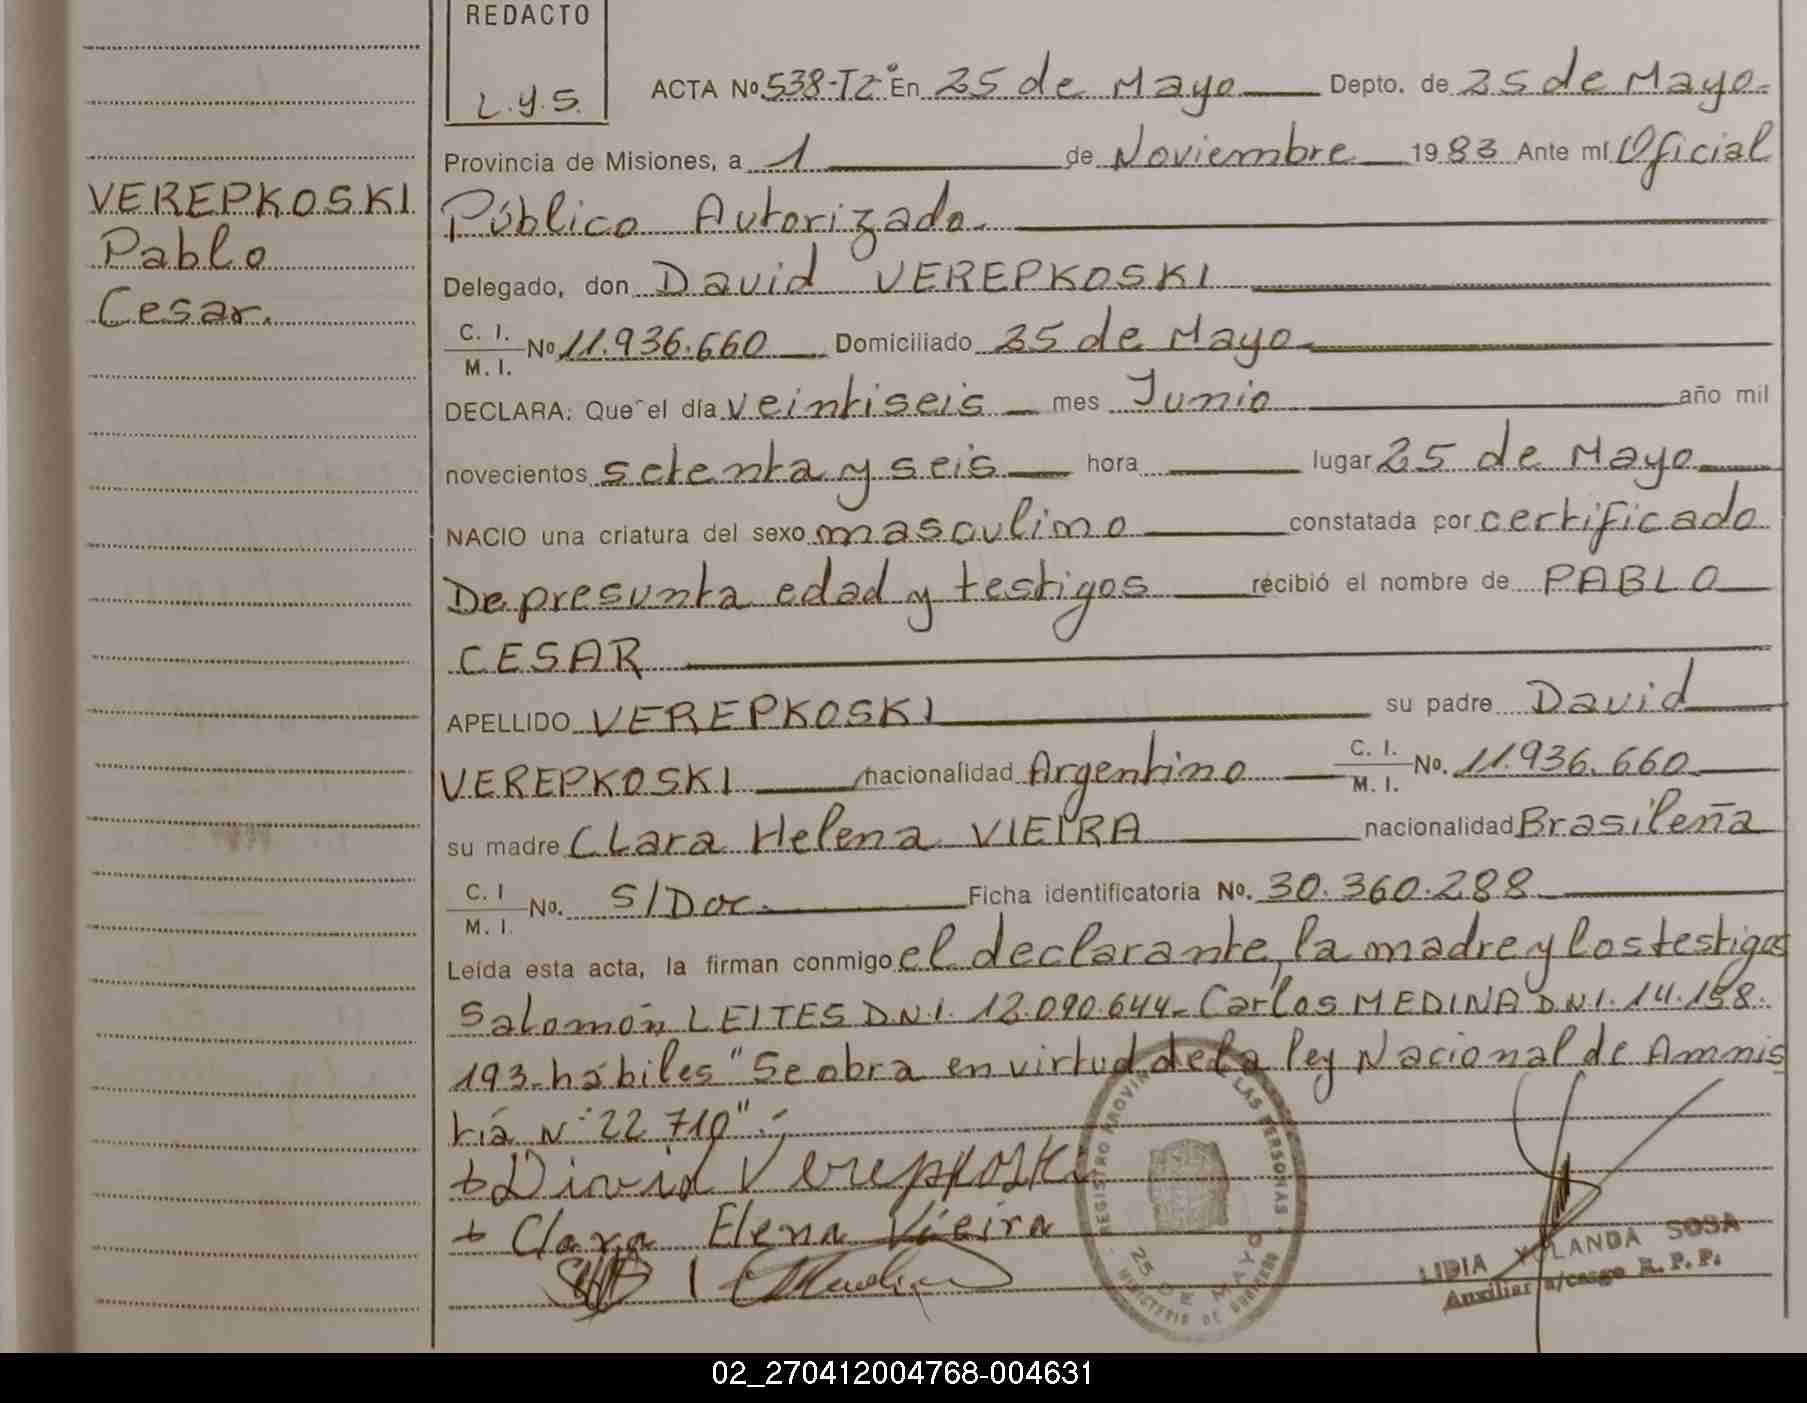 REDACTO
L.Y.S.
ACTA Nº 538-T2º En 25 de Mayo Depto. de 25 de Mayo.
Provincia de Misiones, a 1 de Noviembre 1983 Ante mí Oficial
VEREPKOSKI
Pablo
Cesar.
Público Autorizado.
Delegado, don David VEREPKOSKI
C. I.
M. I. Nº 11.936.660 Domiciliado 25 de Mayo
DECLARA: Que el día veintiseis mes Junio año mil
novecientos setenta y seis hora lugar 25 de Mayo
NACIO una criatura del sexo masculino constatada por certificado
De presunta edad y testigos recibió el nombre de PABLO
CESAR
APELLIDO VEREPKOSKI su padre David
VEREPKOSKI nacionalidad Argentino C. I. M. I. No. 11.936.660
su madre Clara Helena VIEIRA nacionalidad Brasileña
C. I M. I. No. S/Doc. Ficha identificatoria No. 30.360.288
Leída esta acta, la firman conmigo el declarante, la madre y los testigos
Salomón LEITES D.N.I. 12.090.644- Carlos MEDINA D.N.I. 14.158.
193-hábiles "Se obra en virtud de la ley Nacional de Amnis
tía Nº 22.710".-
+ David Verepkoski
+ Clara Elena Vieira
REGISTRO PROVINCIAL DE LAS PERSONAS
25 DE MAYO
MINISTERIO DE GOBIERNO
LIDIA YOLANDA SOSA
Auxiliar a/cargo R. P. P.
02_270412004768-004631